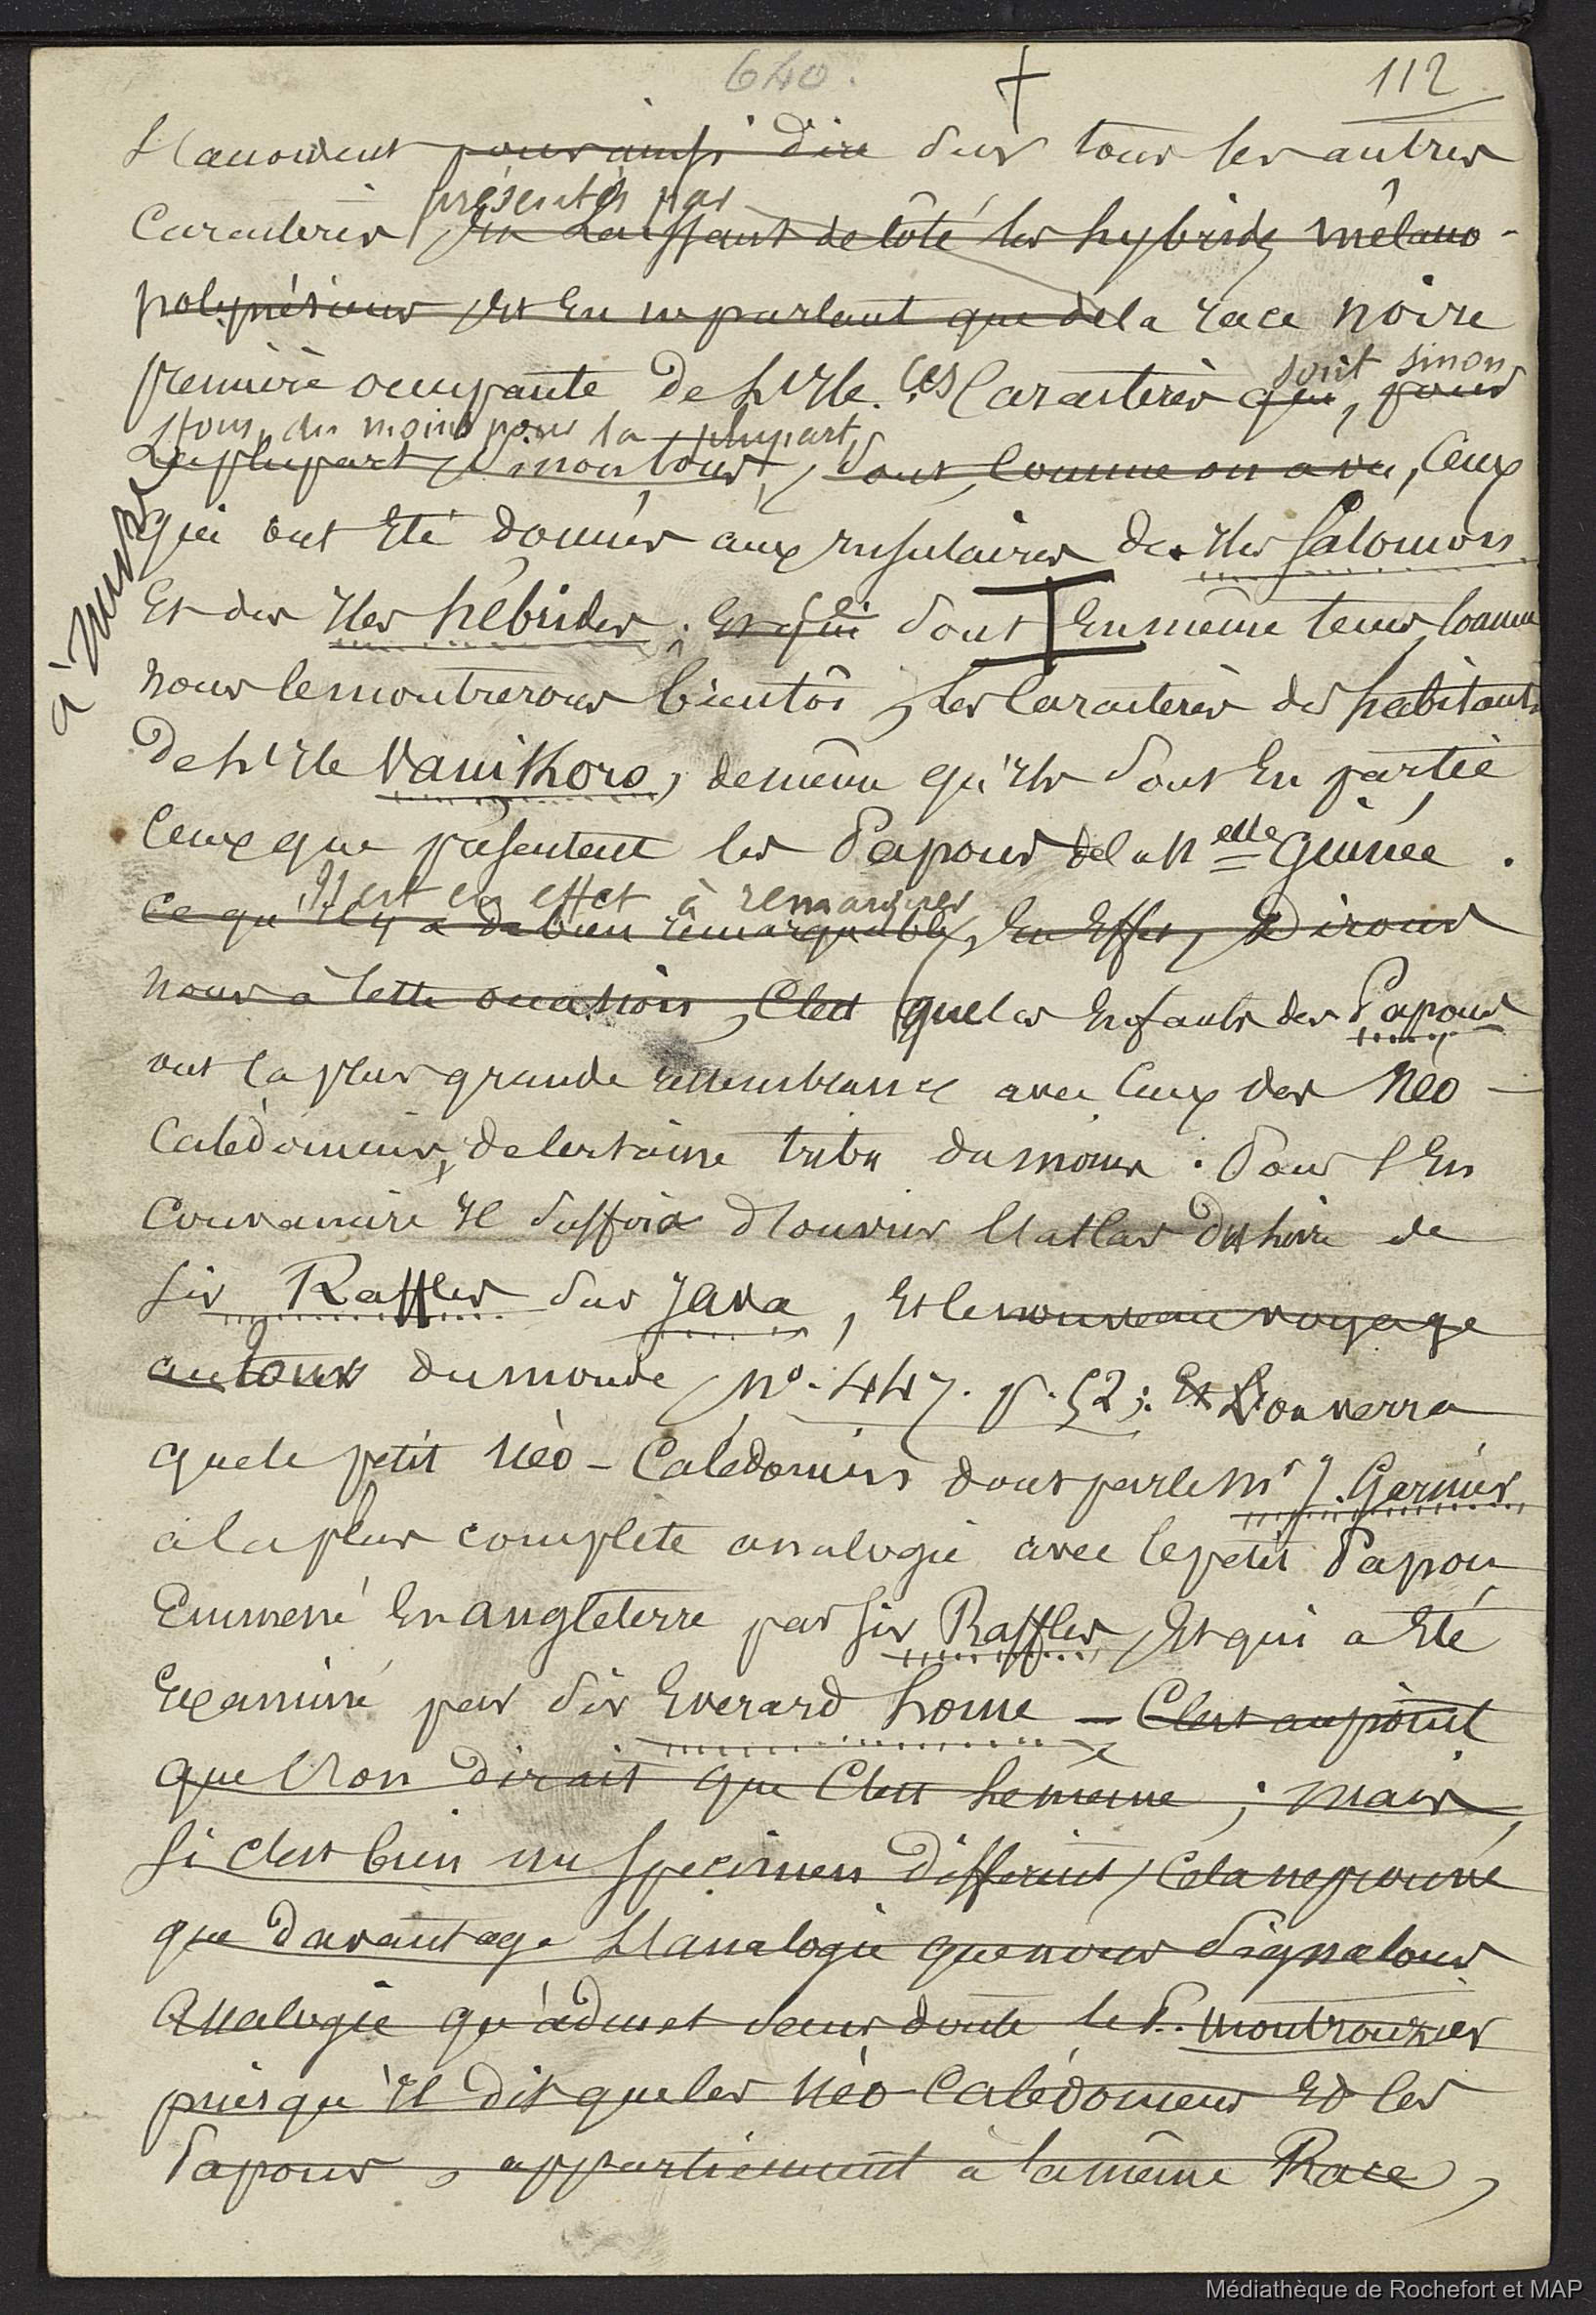 640.
112
s'accordent pour ainsi dire sur tous les autres
présentés par
Caractères En Laissant de Côté les hybrides mélano-
polynésiens Et En ne parlant que de la race noire
soit sinon
première occupante de l'Ile. Ces Caractères que, pour
tous, du moins pour la plupart,
La plupart, sinon tous, sont, Comme on a vu, Ceux
qui ont Eté donnés aux Insulaires des Iles Salomon
à suivre
Et des Iles hébrides ; Et qui sont En même tems, Comme
nous le montrerons bientôt, les Caractères des habitants
de l'Ile Vanikoro, de même qu'Ils sont En partie
Ceux que présentent les Papous de la Nelle Guinée.
Il est en effet à remarquer
Ce qu'Il y a de bien remarquable, En Effet, Dirons
nous à Cette occasion, C'est que les Enfants des Papous
ont la plus grande ressemblance avec Ceux des Néo-
Calédoniens, de Certaine tribu du moins. Pour s'En
Convaincre Il suffira d'ouvrir l'atlas du livre de
Sir Raffles sur Java, Et le nouveau voyage
autour du monde, No. 447. p. 52; Et L'on verra
que le petit Néo-Calédonien dont parle Mr J. Garnier
a la plus complète analogie avec le petit Papou
Emmené En angleterre par Sir Raffles, Et qui a Eté
Examiné par Sir Everard home – C'est au point
que l'on dirait que C'est le même ; mais,
si c'est bien un specimen différent, Cela ne prouve
que davantage L'analogie que nous signalons
Analogie qu'admet sans doute le P. Montrouzier
puisqu'Il dit que les Néo-Calédoniens Et les
Papous, appartiennent à la même Race,
Médiathèque de Rochefort et MAP